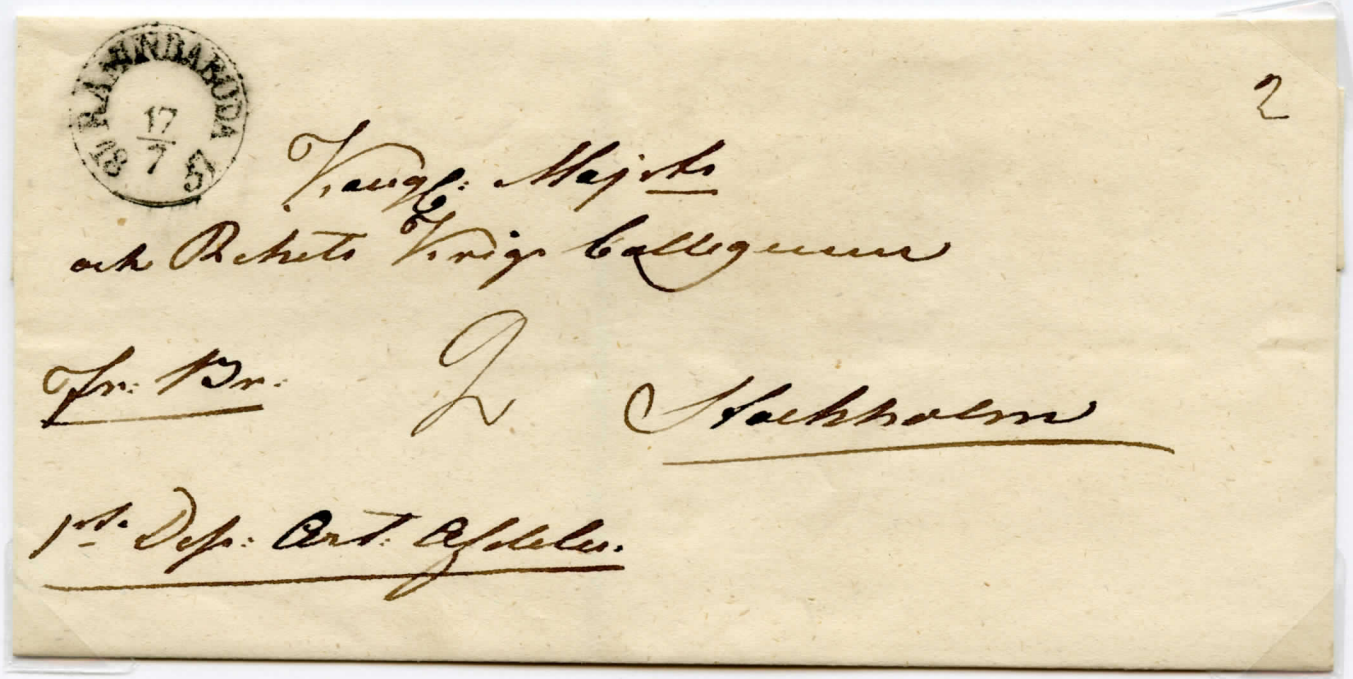 RAMUNDABODA
17
7
18 57
2
Kongl: Maj:ts
och Rikets Krigs Collegium
Fr: Br: 2 Stockholm
1sta Dep: Art: Afdeln.